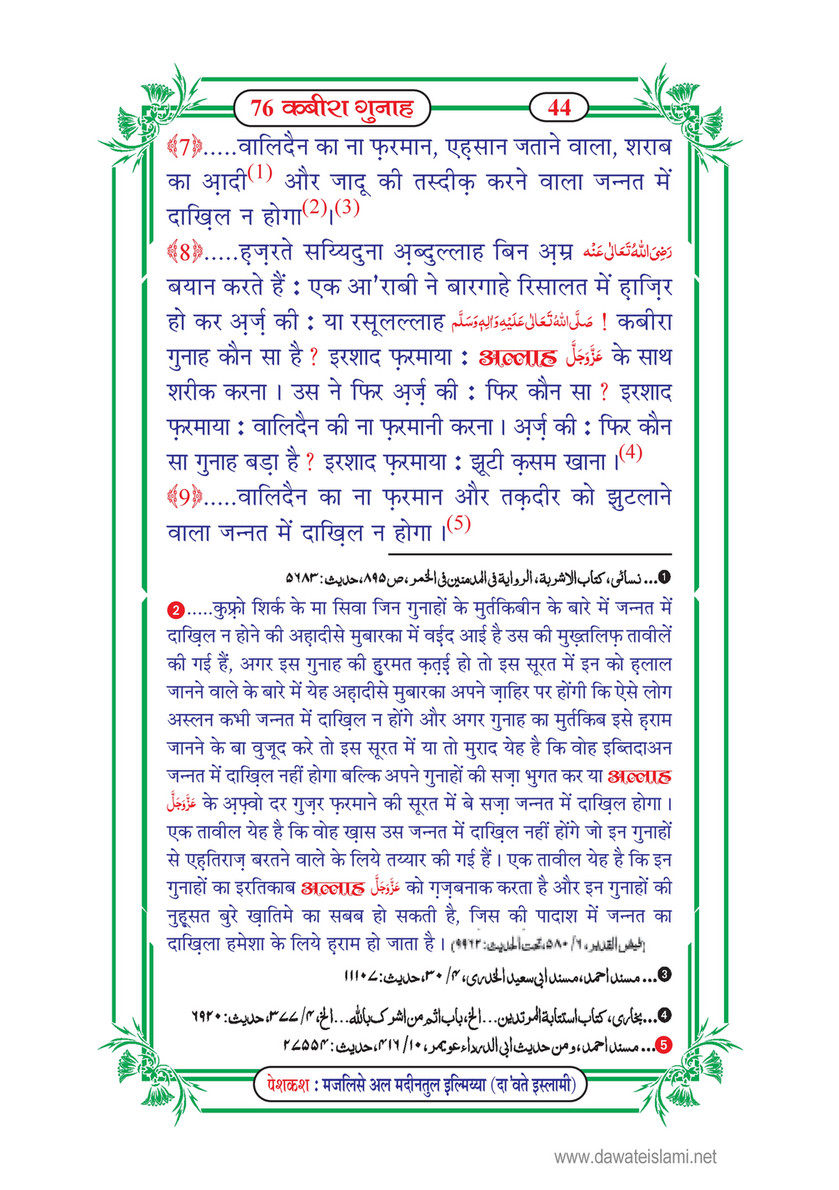 76 कबीरा गुनाह
44
﴾7﴿.....वालिदैन का ना फ़रमान, एह़सान जताने वाला, शराब
का आ़दी(1) और जादू की तस्दीक़ करने वाला जन्नत में
दाख़िल न होगा(2)।(3)
﴾8﴿.....ह़ज़रते सय्यिदुना अ़ब्दुल्लाह बिन अ़म्र رَضِیَ اللهُ تَعَالٰی عَنْه
बयान करते हैं : एक आ'राबी ने बारगाहे रिसालत में ह़ाज़िर
हो कर अ़र्ज़ की : या रसूलल्लाह صَلَّی اللهُ تَعَالٰی عَلَیْهِ وَاٰلِهٖ وَسَلَّم ! कबीरा
गुनाह कौन सा है ? इरशाद फ़रमाया : अल्लाह عَزَّوَجَلَّ के साथ
शरीक करना । उस ने फिर अ़र्ज़ की : फिर कौन सा ? इरशाद
फ़रमाया : वालिदैन की ना फ़रमानी करना । अ़र्ज़ की : फिर कौन
सा गुनाह बड़ा है ? इरशाद फ़रमाया : झूटी क़सम खाना ।(4)
﴾9﴿.....वालिदैन का ना फ़रमान और तक़दीर को झुटलाने
वाला जन्नत में दाख़िल न होगा ।(5)
❶... نسائی، کتاب الاشربة، الروایة فی المدمنین فی الخمر، ص۸۹۵، حدیث: ۵۶۸۳
❷.....कुफ़्रो शिर्क के मा सिवा जिन गुनाहों के मुर्तकिबीन के बारे में जन्नत में
दाख़िल न होने की अह़ादीसे मुबारका में वई़द आई है उस की मुख़्तलिफ़ तावीलें
की गई हैं, अगर इस गुनाह की हु़रमत क़त़ई़ हो तो इस सूरत में इन को ह़लाल
जानने वाले के बारे में येह अह़ादीसे मुबारका अपने ज़ाहिर पर होंगी कि ऐसे लोग
अस्लन कभी जन्नत में दाख़िल न होंगे और अगर गुनाह का मुर्तकिब इसे ह़राम
जानने के बा वुजूद करे तो इस सूरत में या तो मुराद येह है कि वोह इब्तिदाअन
जन्नत में दाख़िल नहीं होगा बल्कि अपने गुनाहों की सज़ा भुगत कर या अल्लाह
عَزَّوَجَلَّ के अ़फ़्वो दर गुज़र फ़रमाने की सूरत में बे सज़ा जन्नत में दाख़िल होगा ।
एक तावील येह है कि वोह ख़ास उस जन्नत में दाख़िल नहीं होंगे जो इन गुनाहों
से एह़तिराज़ बरतने वाले के लिये तय्यार की गई हैं । एक तावील येह है कि इन
गुनाहों का इरतिकाब अल्लाह عَزَّوَجَلَّ को ग़ज़बनाक करता है और इन गुनाहों की
नुहू़सत बुरे ख़ातिमे का सबब हो सकती है, जिस की पादाश में जन्नत का
दाख़िला हमेशा के लिये ह़राम हो जाता है । (فیض القدیر، ۶/ ۵۸۰، تحت الحدیث: ۹۹۶۲)
❸... مسند احمد، مسند ابی سعید الخدری، ۴/ ۳۰، حدیث: ۱۱۱۰۷
❹... بخاری، کتاب استتابة المرتدین...الخ، باب اثم من اشرک بالله...الخ، ۴/ ۳۷۷، حدیث: ۶۹۲۰
❺... مسند احمد، ومن حدیث ابی الدرداء عویمر، ۱۰/ ۴۱۶، حدیث: ۲۷۵۵۴
पेशकश : मजलिसे अल मदीनतुल इल्मिय्या (दा'वते इस्लामी)
www.dawateislami.net